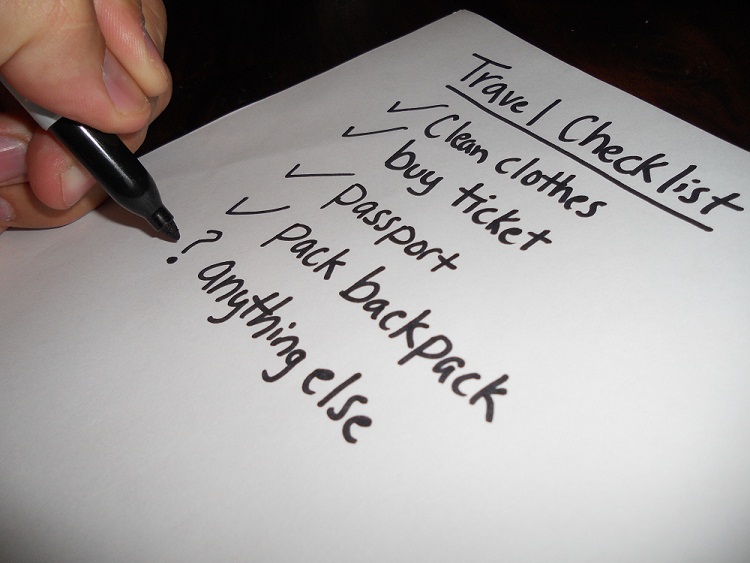 Travel Checklist
✓ Clean clothes
✓ buy ticket
✓ passport
✓ pack backpack
? anything else